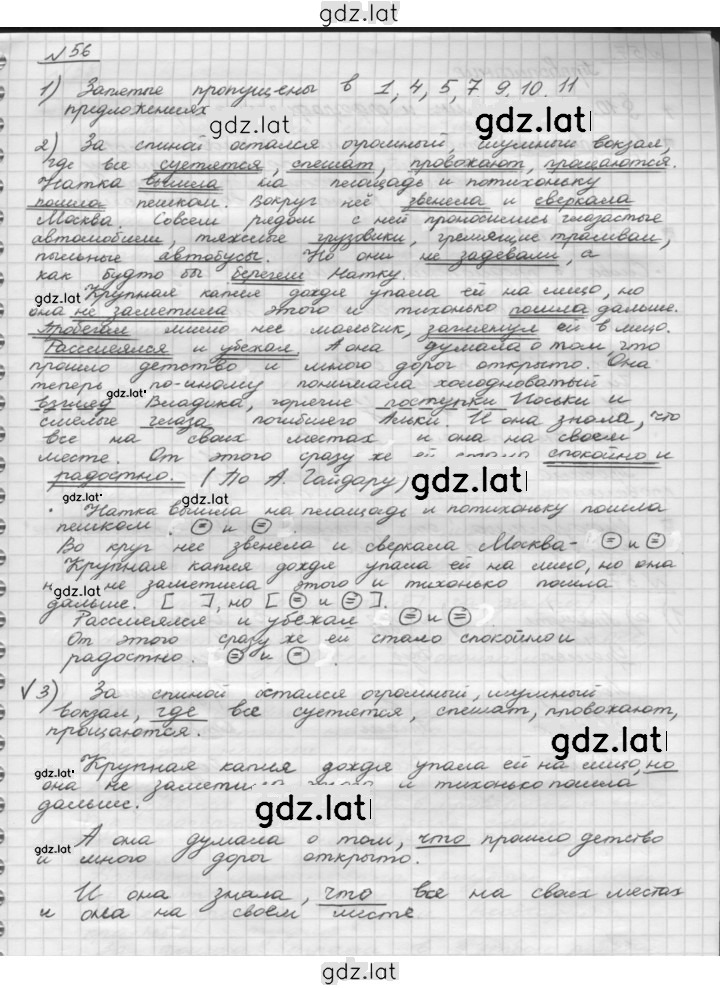 gdz.lat
№ 56
1) Запятые пропущены в 1, 4, 5, 7 9, 10. 11
предложениях
gdz.lat
2) За спиной остался огромный, шумный вокзал,
где все суетятся, спешат, провожают, прощаются.
Натка вышла на площадь и потихоньку
пошла пешком. Вокруг неё звенела и сверкала
Москва. Совсем рядом с ней проносились глазастые
автомобили, тяжелые грузовики, гремящие трамваи,
пыльные автобусы. Но они не задевали, а
как будто бы берегли Натку.
gdz.lat
Крупная капля дождя упала ей на лицо, но
она не заметила этого и тихонько пошла дальше.
Пробегал мимо нее мальчик, заглянул ей в лицо.
Рассмеялся и убежал. А она думала о том, что
прошло детство и много дорог открыто. Она
теперь по-иному понимала холодноватый
gdz.lat
взгляд Владика, горячие поступки Иоськи и
смелые глаза погибшего Альки. И она знала, что
все на своих местах и она на своем
месте. От этого сразу же ей стало спокойно и
радостно. (По А. Гайдару)
gdz.lat
gdz.lat
Натка вышла на площадь и потихоньку пошла
пешком. = и =.
Во круг нее звенела и сверкала Москва- = и =
Крупная капля дождя упала ей на лицо, но она
gdz.lat
не заметила этого и тихонько пошла
дальше. [ ], но [ = и = ].
Рассмеялся и убежал = и =.
От этого сразу же ей стало спокойно и
радостно. = и =.
gdz.lat
√ 3) За спиной остался огромный, шумный
вокзал, где все суетятся, спешат, провожают,
прощаются.
gdz.lat
Крупная капля дождя упала ей на лицо, но
gdz.lat
она не заметила этого и тихонько пошла
дальше.
gdz.lat
А она думала о том, что прошло детство
gdz.lat
и много дорог открыто.
И она знала, что все на своих местах
и она на своем месте.
gdz.lat